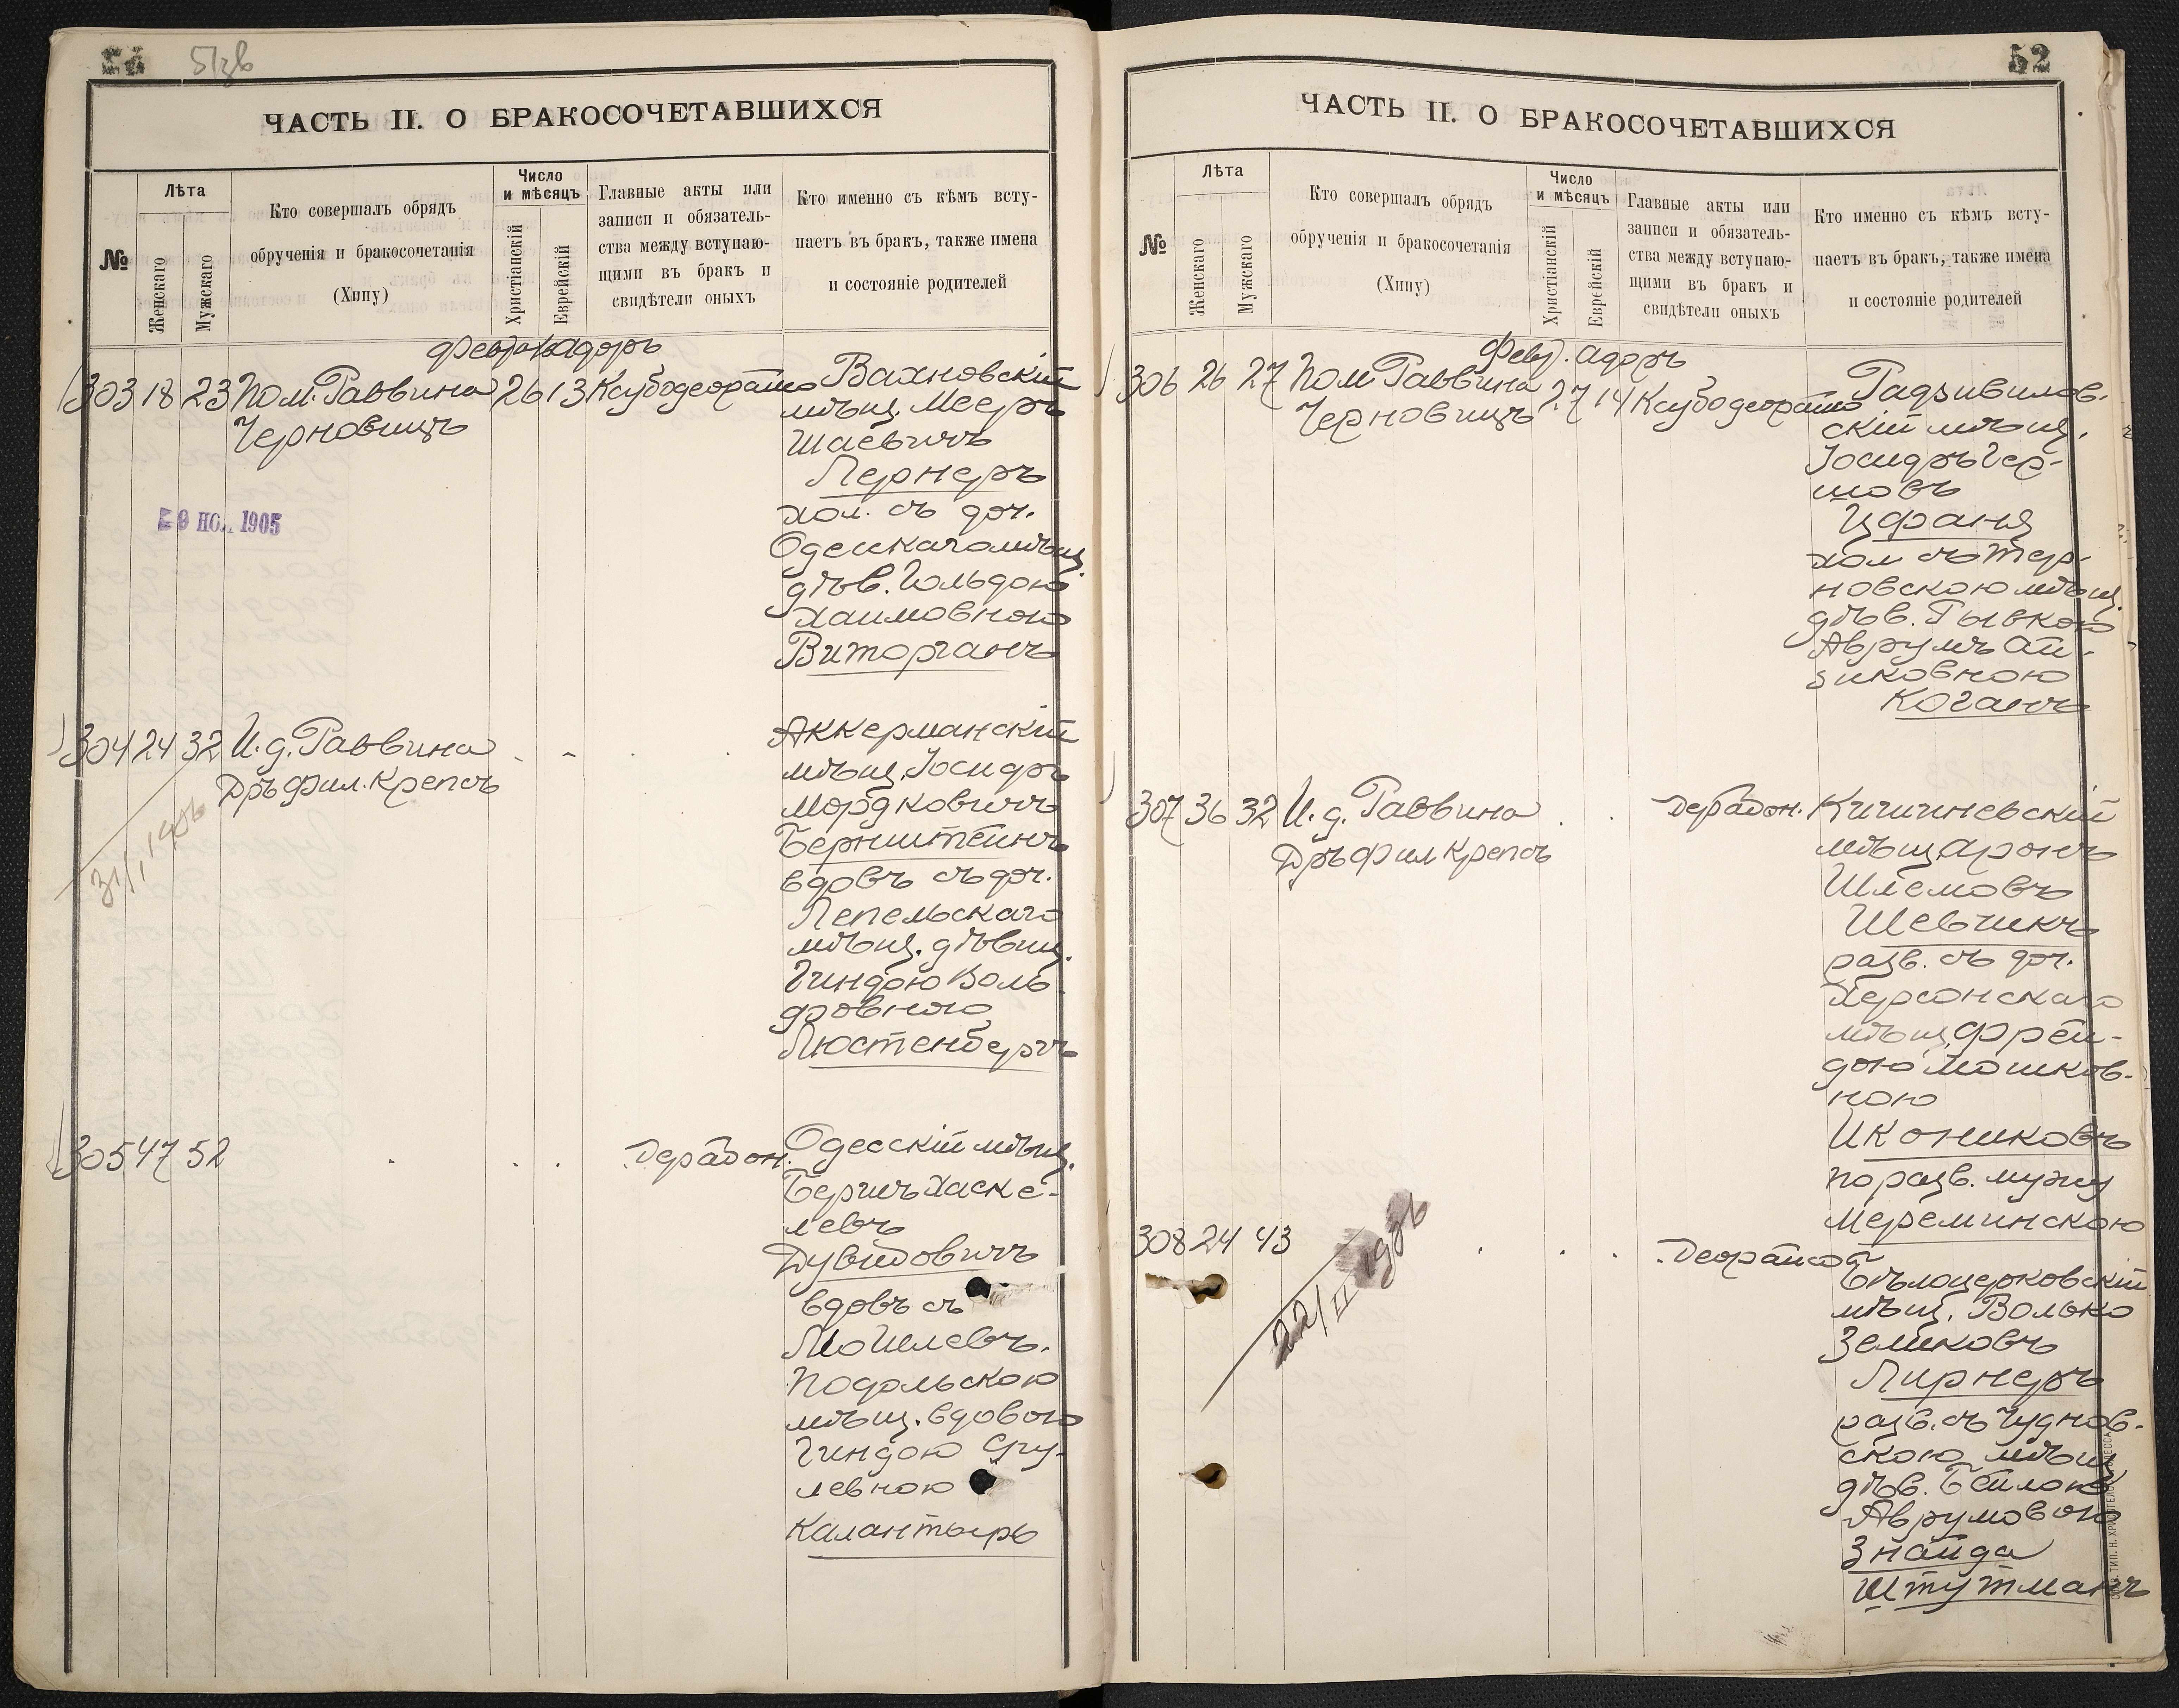 51зв
ЧАСТЬ II. О БРАКОСОЧЕТАВШИХСЯ
№
Лѣта
Женскаго
Мужскаго
Кто совершалъ обрядъ
обрученія и бракосочетанія
(Хипу)
Число
и мѣсяцъ
Христіанскій
Еврейскій
Главные акты или
записи и обязатель-
ства между вступаю-
щими въ бракъ и
свидѣтели оныхъ
Кто именно съ кѣмъ всту-
паетъ въ бракъ, также имена
и состояніе родителей
Адоръ
303 18 23 Пом. Раввина 26 13
Черновицъ
Вахновскій
мѣщ. Мееръ
Шаевичъ
Лернеръ
хол. съ доч.
Одесскаго мѣщ.
дѣв. Гольдою
Хаимовною
Виторганъ
1905
304 24 32 И. д. Раввина
Дръ Фил. Крепсъ
Аккерманскій
мѣщ. Іосифъ
Мордковичъ
Бернштейнъ
вдовъ съ доч.
Лепельскаго
мѣщ. дѣвиц.
Гиндою Воль-
фовною
Люстенбергъ
31/I 1906
305 47 52
Дерабон. Одесскій мѣщ.
Беришъ Хаске-
левъ
Дувидовичъ
вдовъ съ
Могилевъ.
Подольскою
мѣщ. вдовою
Гиндою Сру-
левною
Калантыръ
52
ЧАСТЬ II. О БРАКОСОЧЕТАВШИХСЯ
№
Лѣта
Женскаго
Мужскаго
Кто совершалъ обрядъ
обрученія и бракосочетанія
(Хипу)
Число
и мѣсяцъ
Христіанскій
Еврейскій
Главные акты или
записи и обязатель-
ства между вступаю-
щими въ бракъ и
свидѣтели оныхъ
Кто именно съ кѣмъ всту-
паетъ въ бракъ, также имена
и состояніе родителей
Февр. Адоръ
306 26 27 Пом Раввина 27 14
Черновицъ
Радзивилов-
скій мѣщ.
Іосифъ Гер-
шовъ
Цфаня
хол съ Тер-
новскою мѣщ.
дѣв. Рывкою
Аврумъ Ай-
зиковною
Коганъ
307 36 32 И. д. Раввина
Дръ Фил Крепсъ
Дерабон. Кишиневскій
мѣщ. Аронъ
Шлемовъ
Шевчикъ
разв. съ доч.
Херсонскаго
мѣщ. Фрей-
дою Мошков-
ною
Икониковъ
по разв. мужу
Мереминскою
308 24 43
Бѣлоцерковскій
мѣщ. Волько
Зейликовъ
Лирнеръ
разв. съ Чуднов-
скою мѣщ
дѣв. Бейлою
Аврумовою
Знайда
Штутманъ